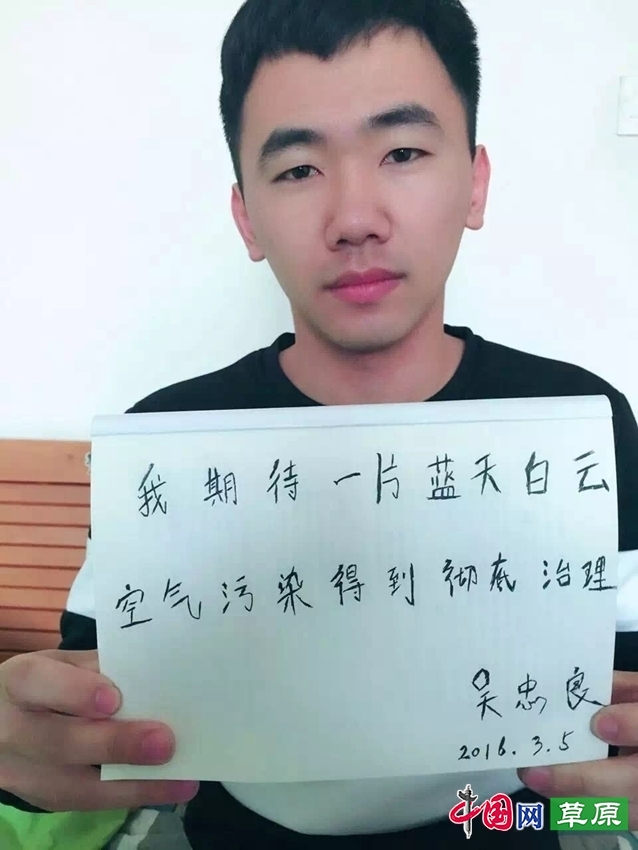 我期待一片蓝天白云
空气污染得到彻底治理
吴忠良
2016.3.5
中国网 草原